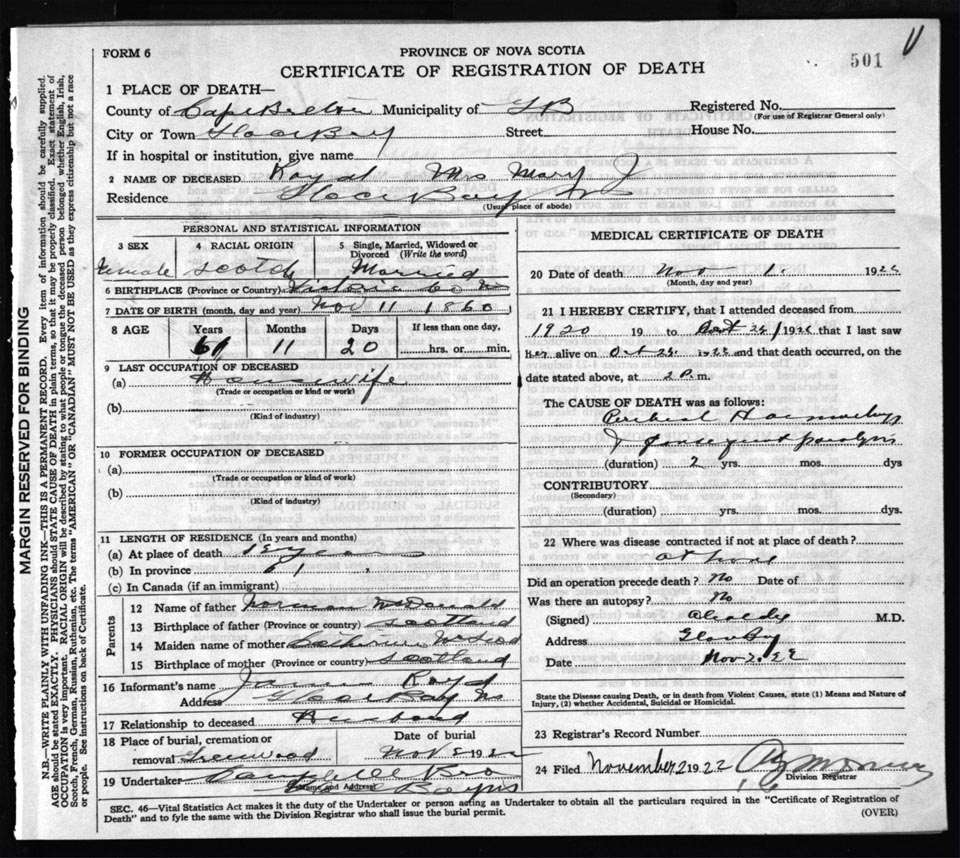 FORM 6
PROVINCE OF NOVA SCOTIA
501
CERTIFICATE OF REGISTRATION OF DEATH
1 PLACE OF DEATH—
County of Cape Breton Municipality of G B Registered No.
(For use of Registrar General only)
City or Town Glace Bay Street House No.
If in hospital or institution, give name
2 NAME OF DECEASED Mrs Mary J
Residence Glace Bay NS
(Usual place of abode)
PERSONAL AND STATISTICAL INFORMATION
3 SEX 4 RACIAL ORIGIN 5 Single, Married, Widowed or Divorced (Write the word)
Female Scotch Married
6 BIRTHPLACE (Province or Country) Victoria Co NS
7 DATE OF BIRTH (month, day and year) Nov 11 1860
8 AGE Years Months Days If less than one day,
61 11 20 hrs. or min.
9 LAST OCCUPATION OF DECEASED
(a) Housewife
(Trade or occupation or kind of work)
(b)
(Kind of industry)
10 FORMER OCCUPATION OF DECEASED
(a)
(Trade or occupation or kind of work)
(b)
(Kind of industry)
11 LENGTH OF RESIDENCE (In years and months)
(a) At place of death years
(b) In province 61
(c) In Canada (if an immigrant)
Parents
12 Name of father Norman McDonald
13 Birthplace of father (Province or country) Scotland
14 Maiden name of mother Catherine McLeod
15 Birthplace of mother (Province or country) Scotland
16 Informant's name James
Address Glace Bay NS
17 Relationship to deceased Husband
18 Place of burial, cremation or removal Greenwood
Date of burial
Nov 1922
19 Undertaker Campbell Bro
(Name and Address)
Glace Bay NS
MEDICAL CERTIFICATE OF DEATH
20 Date of death Nov 1. 1922
(Month, day and year)
21 I HEREBY CERTIFY, that I attended deceased from
1920 19 to Oct 26 1922 that I last saw
her alive on Oct 26. 1922 and that death occurred, on the
date stated above, at 2 P. m.
The CAUSE OF DEATH was as follows:
Cerebral Haemorrhage
& consequent paralysis
(duration) 2 yrs. mos. dys
CONTRIBUTORY
(Secondary)
(duration) yrs. mos. dys.
22 Where was disease contracted if not at place of death?
at home
Did an operation precede death? No Date of
Was there an autopsy? No
(Signed) M.D.
Address Glace Bay
Date Nov 2. 22
State the Disease causing Death, or in death from Violent Causes, state (1) Means and Nature of
Injury, (2) whether Accidental, Suicidal or Homicidal.
23 Registrar's Record Number
24 Filed November 2 1922
Division Registrar
SEC. 46—Vital Statistics Act makes it the duty of the Undertaker or person acting as Undertaker to obtain all the particulars required in the "Certificate of Registration of
Death" and to fyle the same with the Division Registrar who shall issue the burial permit.
(OVER)
MARGIN RESERVED FOR BINDING
N.B.—WRITE PLAINLY WITH UNFADING INK—THIS IS A PERMANENT RECORD. Every item of information should be carefully supplied.
AGE should be stated EXACTLY. PHYSICIANS should STATE CAUSE OF DEATH in plain terms, so that it may be properly classified. Exact statement of
OCCUPATION is very important. RACIAL ORIGIN will be described by stating to what people or tongue the deceased person belonged whether English, Irish,
Scotch, French, German, Russian, Ruthenian, etc. The terms "AMERICAN" OR "CANADIAN" MUST NOT BE USED as they express citizenship but not a race
or people. See instructions on back of Certificate.